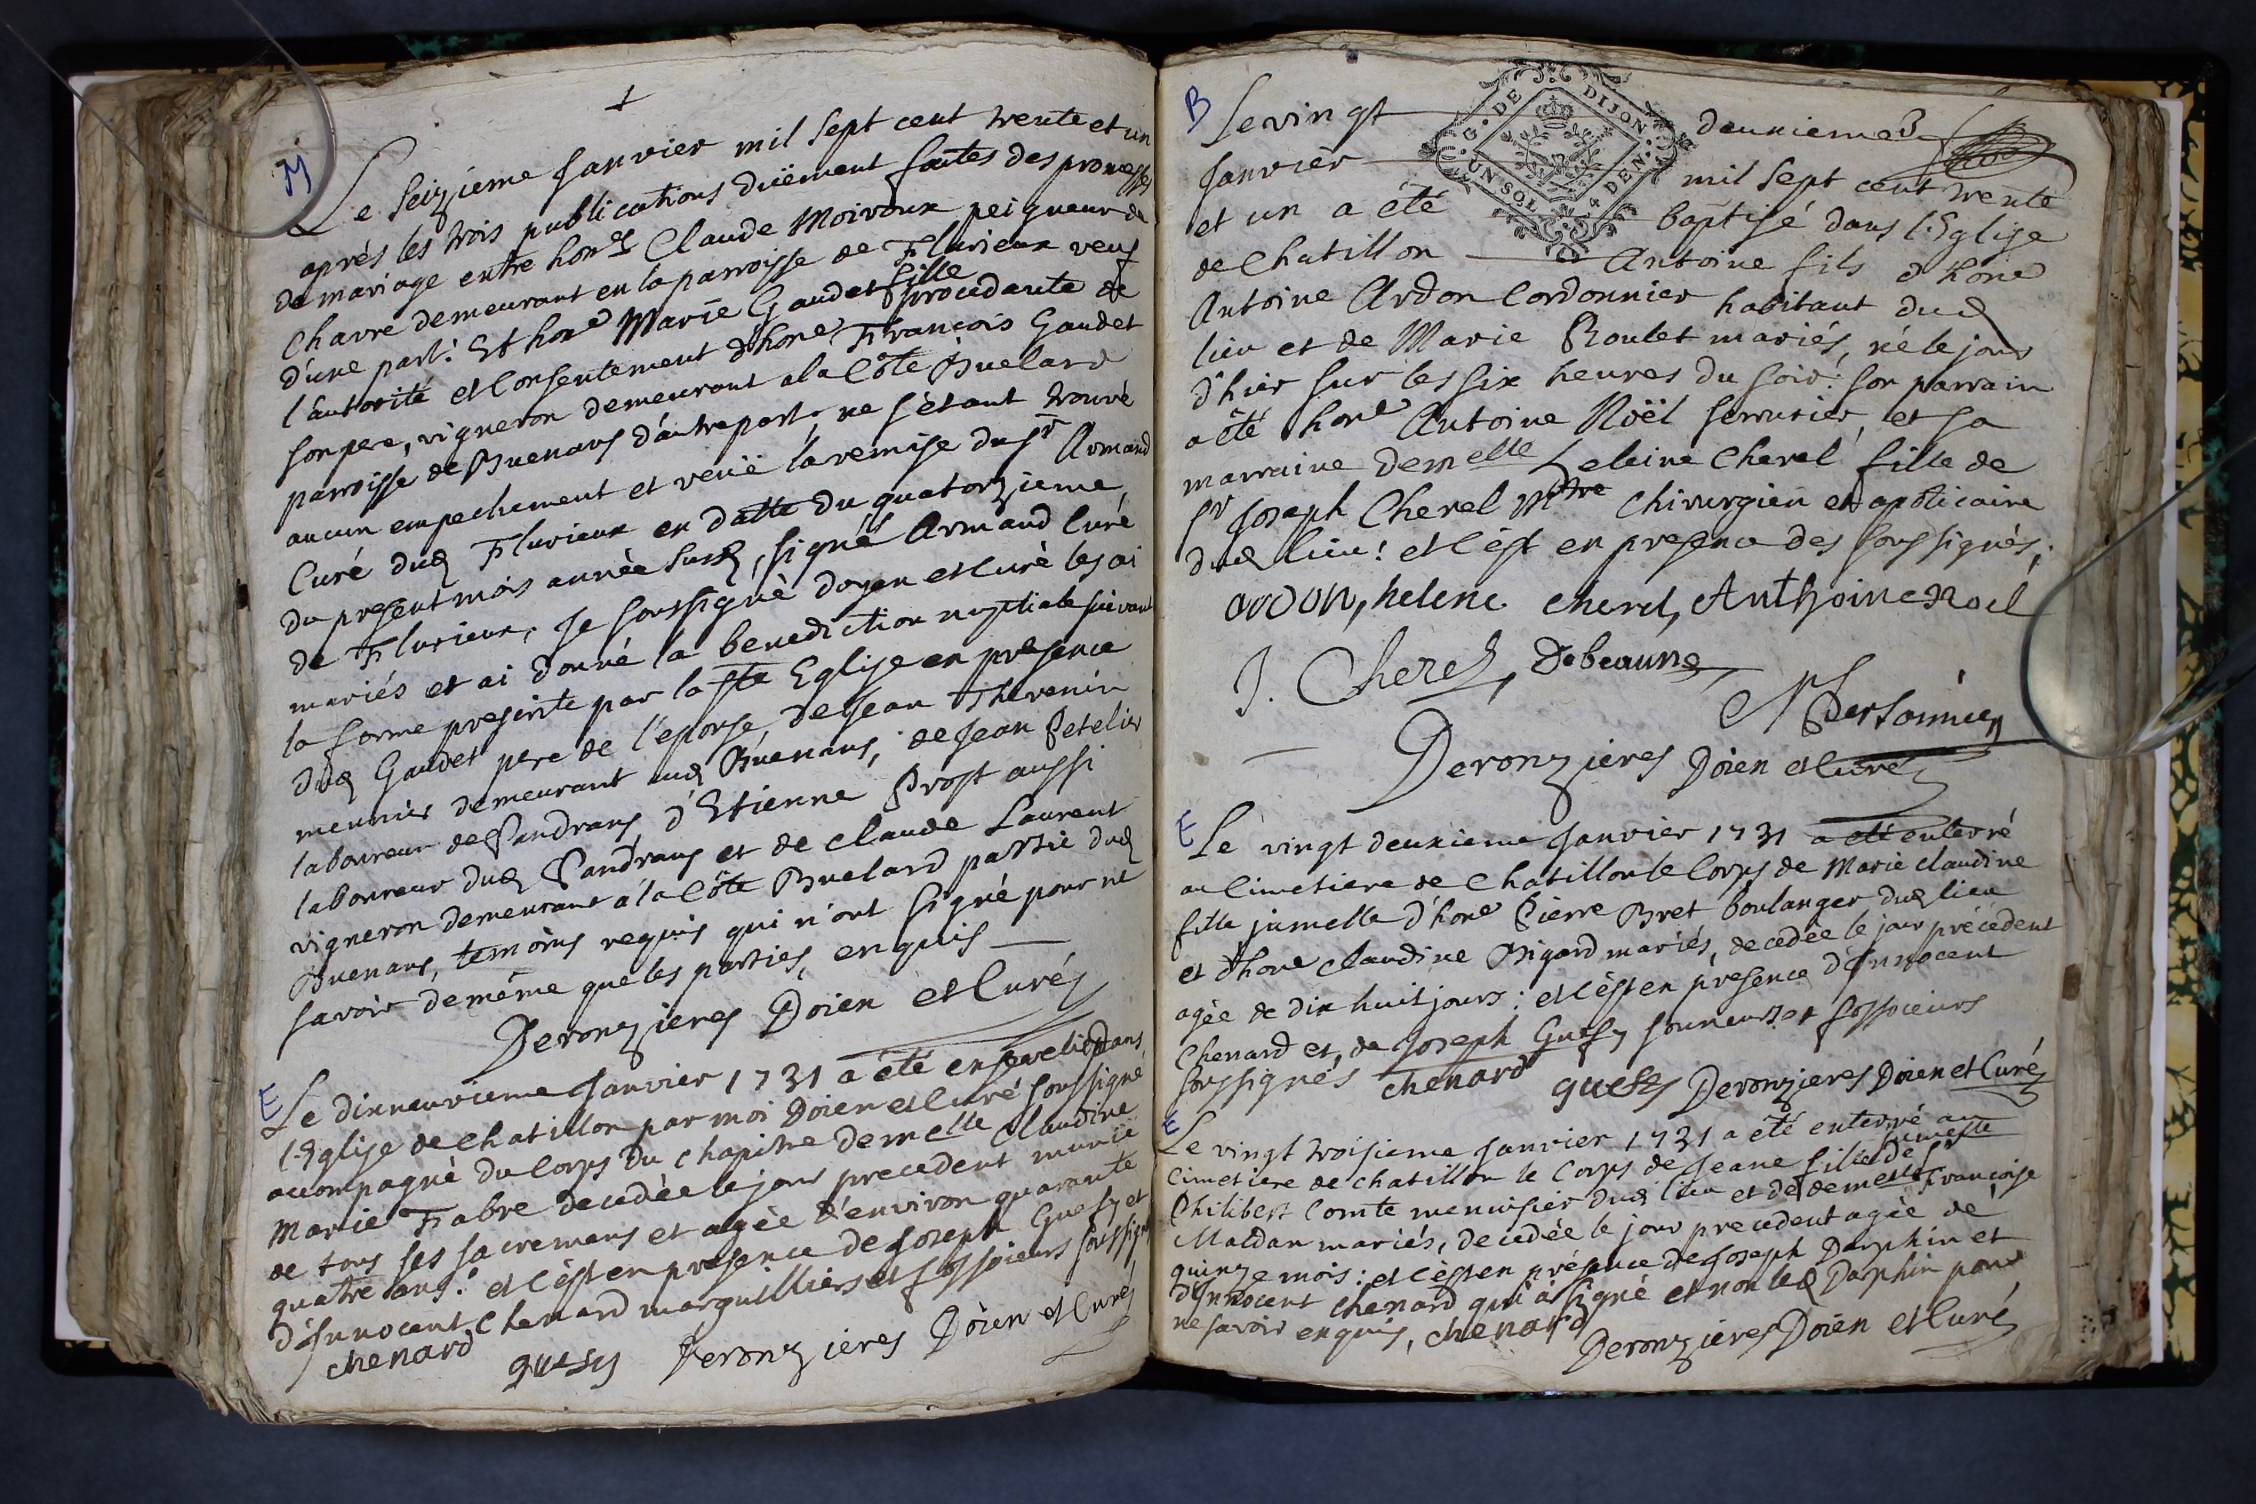 M
Le Seizieme Janvier mil Sept cent trente et un
aprés les trois publications düement faites des promesses
de mariage entre hon.es Claude Moiroux peigneur de
chavre demeurant en la parroisse de Flurieux veuf
d'une part: Et hon.e Marie Gaudet fille procedante de
l'autorité et Consentement d'hon.e François Gaudet
son pere, vigneron demeurant a la Côte Buelard
parroisse de Buenans d'autre part; ne s'étant trouvé
aucun empechement et veüe la remise du Sr Armand
Curé dud Flurieux en datte du quatorzieme
du present mois année susd, signé Armand Curé
de Flurieux, Je soussigné doyen et Curé les ai
mariés et ai donné la benediction nuptiale suivant
la forme prescrite par la ste Eglise en presence
dud Gaudet pere de l'epouse, de Jean Thevenin
meunier demeurant aud Buenans, de Jean Petelier
laboureur de Sandrans, d'Etienne Prost aussi
laboureur dud Sandrans et de Claude Laurent
vigneron demeurant a la Côte Buelard partie dud
Buenans, temoins requis qui n'ont signé pour ne
savoir de même que les parties, enquis
Deronzieres Doien et Curé
E
Le dixneuvieme Janvier 1731 a été enseveli dans
l'Eglise de Chatillon par moi Doien et Curé soussigné
accompagné du Corps du Chapitre demelle Claudine
Marie Fabre decedée le jour precedent munie
de tous ses sacremens et agée d'environ quarante
quatre ans: et c'est en presence de Joseph Guesy et
d'Innocent Chenard marguilliers et fossoieurs soussignés
chenard guesy Deronzieres Doien et Curé
B
Le vingt deuxieme
G. DE DIJON
UN SOL 4 DEN.
Janvier mil Sept cent trente
et un a été baptisé dans l'Eglise
de Chatillon Antoine fils d'hon.e
Antoine Ardon Cordonnier habitant dud
lieu et de Marie Roulet mariés, né le jour
d'hier sur les six heures du soir: son parrain
a été hon.e Antoine Noël serrurier, et sa
marraine demelle Heleine Cherel fille de
Sr Joseph Cherel Mtre Chirurgien et apoticaire
dud lieu: et c'est en presence des soussignés,
ardon, helene cherel, Anthoine Noel
J. Cherel, Debeaune
Persónier
Deronzieres Doien et Curé
E
Le vingt deuxieme Janvier 1731 a été enterré
au Cimetiere de Chatillon le Corps de Marie Claudine
fille jumelle d'hon.e Pierre Bret boulanger dud lieu
et d'hon.e Claudine Bigard mariés, decedée le jour précédent
agée de dix huit jours: et c'est en presence d'Innocent
Chenard et, de Joseph Guesy sonneurs et fossoieurs
soussignés chenard guesy Deronzieres Doien et Curé
E
Le vingt troisieme Janvier 1731 a été enterré au
Cimetiere de Chatillon le Corps de Jeane fille jumelle de Sr
Philibert Comte menuisier dud lieu et de demelle Françoise
Maldan mariés, decedée le jour precedent agée de
quinze mois: et c'est en présence de Joseph Darphin et
d'Innocent Chenard qui a signé et non led Darphin pour
ne savoir enquis, chenard
Deronzieres Doien et Curé